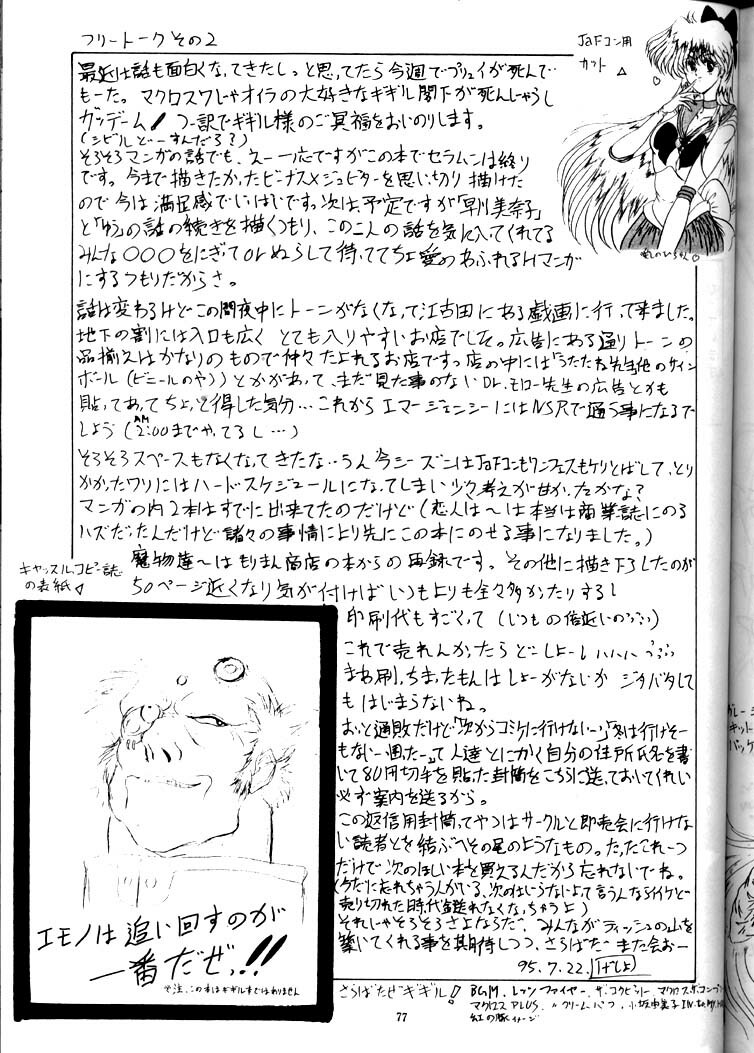 フリートーク その2
JaFコン用
カット
最近は話も面白くなってきたしっと思ってたら今週でブリュイが死んで…
もーた。マクロス7じゃオイラの大好きなギギル閣下が死んじゃうし
ガッデーム! つー訳でギギル様のご冥福をおいのりします。
(シビルどーすんだろ?)
そろそろマンガの話でも、えー一応ですがこの本でセラムンは終り
です。今まで描きたかったビーナス×ジュピターを思い切り描けた
ので今は満足感でいっぱいです。次は、予定ですが「早川美奈子」
と「ゆう」の話の続きを描くつもり、この二人の話を気に入ってくれてる
みんな〇〇〇をにぎってorぬらして待っててちょ愛のあふれるHマンガ
にするつもりだからさ。
話は変わるけどこの間夜中にトーンがなくなって江古田にある戯画に行って来ました。
地下の割には入口も広く とても入りやすいお店でした。広告にある通りトーンの
品揃えはかなりのもので仲々たよれるお店ですっ店の中には「うたたね先生他のサイン
ボール(ビニールのやつ)とかがあって、まだ見た事のないDr.モロー先生の広告とかも
貼ってあってちょっと得した気分… これからエマージェンシーにはNSRで通う事になるで
しょう(AM2:00までやってるし…)
そろそろスペースもなくなってきたな…うん今シーズンはJaFコンもワンフェスもケリとばして、とり
かかったワリにはハードスケジュールになってしまい少々考えが甘かったかな?
マンガの内2本はすでに出来てたのだけど(恋人は〜は本当は商業誌にのる
ハズだったんだけど諸々の事情により先にこの本にのせる事になりました。)
魔物達〜はもりまん商店の本からの再録です。その他に描き下ろしたのが
50ページ近くなり気が付けばいつもよりも全々多かったりするし
キャッスルコピー誌
の表紙
印刷代もすごくって(いつもの倍近いのううう)
これで売れんかったらどーしよーしいいいううう
まあ刷っちまったもんはしょーがないかジタバタして
もはじまらないね。
おっと通販だけど「次からコミケに行けないー」「冬は行けそー
もないー困ったー」って人達とにかく自分の住所氏名を書
いて80円切手を貼った封筒をこちらに送っておいてくれい
必ず案内を送るから。
この返信用封筒ってやつはサークルと即売会に行けな
い読者とを結ぶへその尾のようなもの。たったこれ一つ
だけで次のほしい本を買えるんだから忘れないでね。
(今だに忘れちゃう人がいる、次のはいらないよって言うんならイイケど
売り切れた時代金送れなくなっちゃうよ)
それじゃそろそろさよならだ、みんながティッシュの山を
築いてくれる事を期待しつつ、さらばだ また会おー
95.7.22. げしょ
エモノは追い回すのが
一番だぜっ!!
※注、この本はギギル本ではありません
さらばだぜギギル!
BGM、レッツファイヤー、ザ・コクピット、マクロス・ザ・コンプ
マクロスPLUS、〃クリームパフ、小坂由美子
紅の豚イメージ
77
ガレージ
キット
パッケ